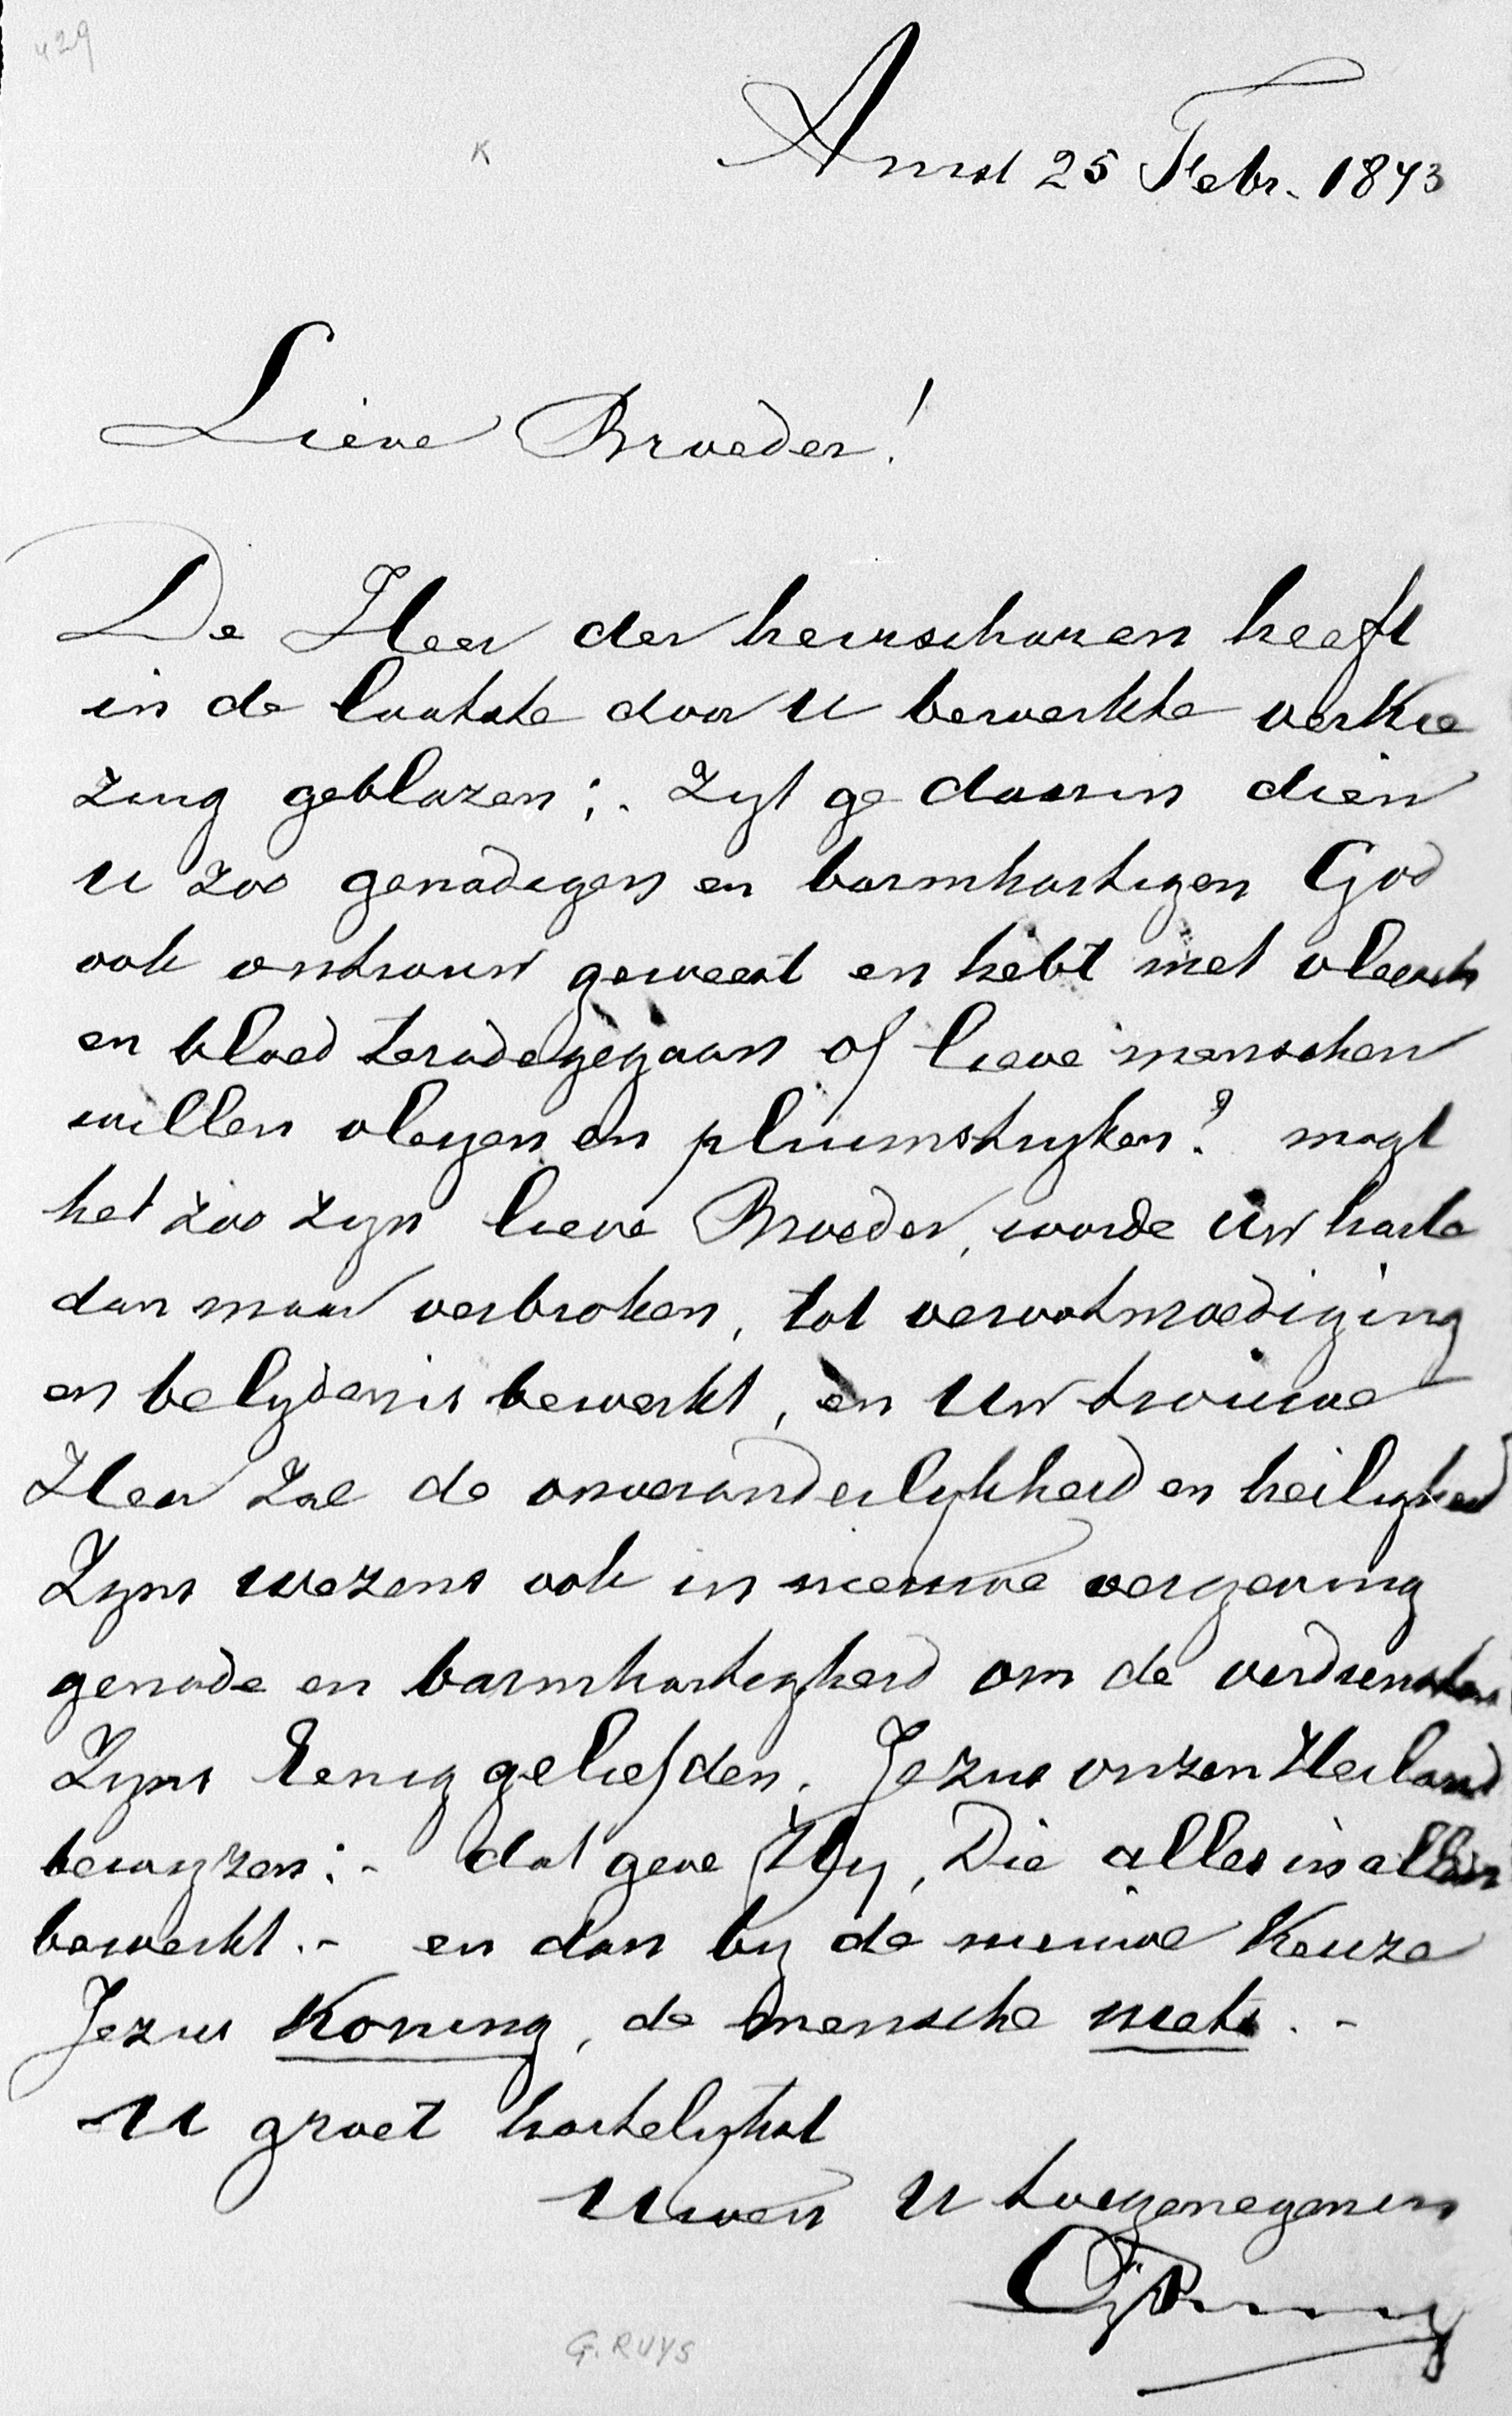 429
K
Amst 25 Febr. 1873
Lieve Broeder!
De Heer der heirscharen heeft
in de laatste door U bewerkte verkie
zing geblazen;. Zyt ge daarin dien
U zoo genadigen en barmhartigen God
ook ontrouw geweest en hebt met vleesch
en bloed terade gegaan of lieve menschen
willen vleyen en pluimstryken? mogt
het zoo zyn lieve Broeder, worde Uw harte
dan maar verbroken, tot verootmoediging
en belydenis bewerkt, en Uw trouwe
Heer zal de onveranderlykheid en heiligheid
Zyns wezens ook in nieuwe vergeving
genade en barmhartigheid om de verdiensten
Zyns Eenig geliefden. Jezus onzen Heiland
bewyzen:- dat geve Hy, Die alles in allen
bewerkt.- en dan by de nieuwe Keuze
Jezus Koning, de mensche niets.-
U groet hartelykst
Uwen U toegenegenen
G. RUYS